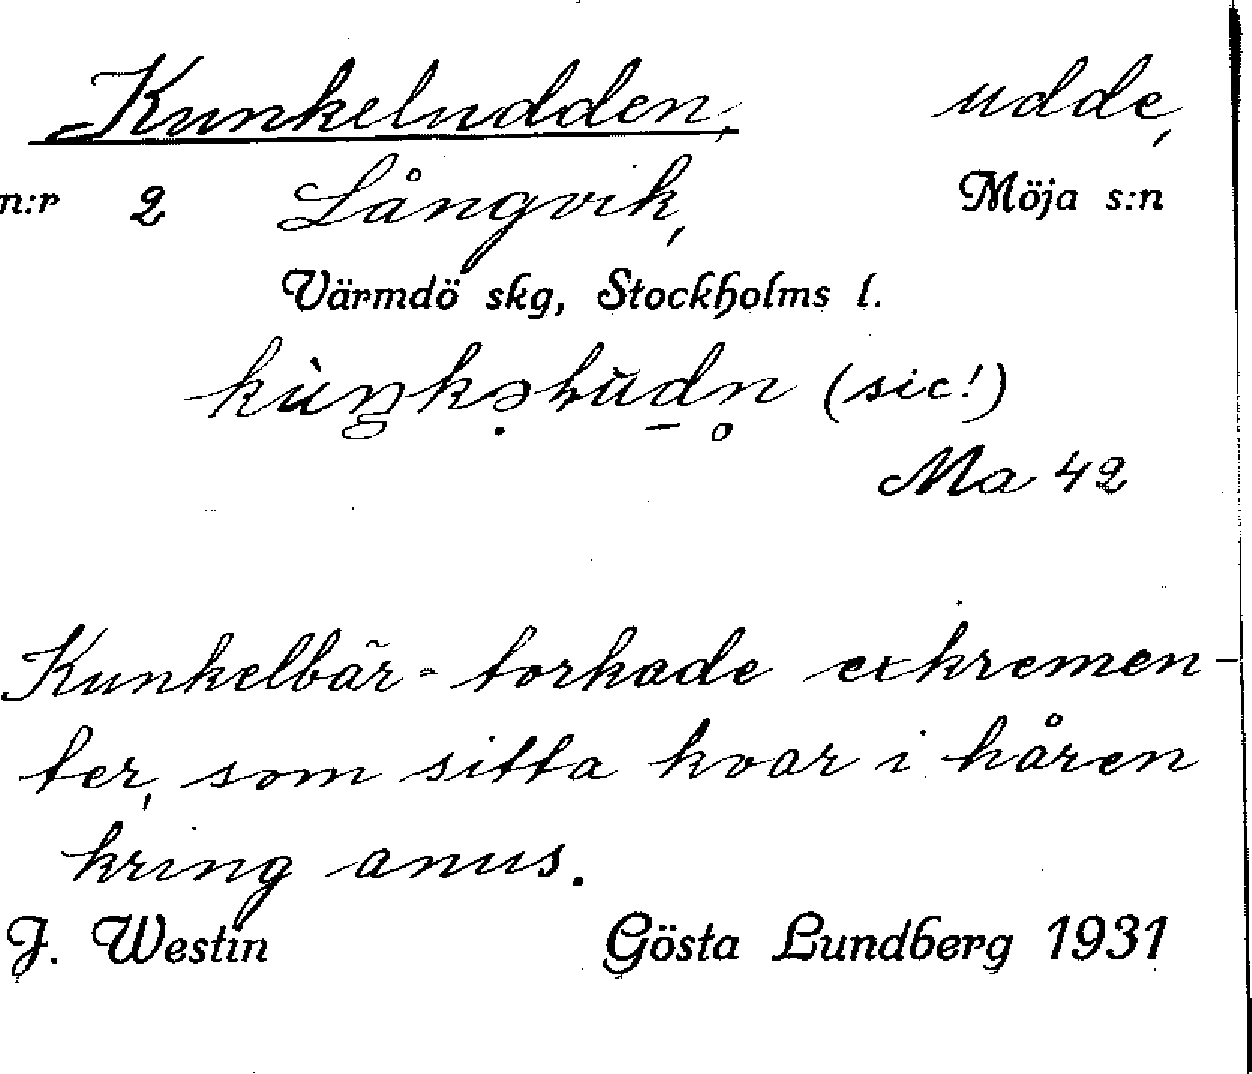 Kunkeludden, udde,
n:r 2 Långvik, Möja s:n
Värmdö skg, Stockholms l.
(sic!)
Ma 42
Kunkelbär - torkade exkremen-
ter, som sitta kvar i håren
kring anus.
J. Westin Gösta Lundberg 1931